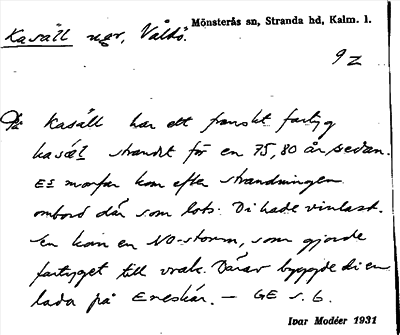 Mönsterås sn, Stranda hd, Kalm. l.
Kasäll ngr, Vållö.
9 Z
På Kasäll har ett franskt fartyg
kasäl strandat för en 75, 80 år sedan.
EI morfar kom efter strandningen
ombord där som lots. Di hade vinlast.
En kom en NO-storm, som gjorde
fartyget till vrak. Därav byggde di en
lada på Eneskär. — GE s. 6.
Ivar Modéer 1931